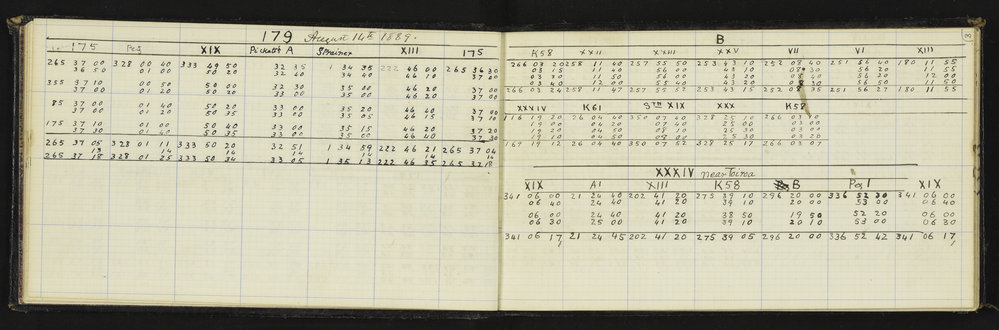 179 August 14th 1889.
175 Peg XIX Pickett A Strainer XIII 175
265 37 00 328 00 40 333 49 50 32 35 1 34 35 222 46 00 265 36 30
36 50 01 00 50 20 32 40 34 40 46 10 37 00
355 37 10 00 50 50 10 32 30 35 00 46 20 37 00
37 00 01 00 50 20 33 00 35 00 46 20 37 00
85 37 00 01 40 50 20 33 00 35 20 46 40 37 00
37 00 01 20 50 35 33 00 35 05 46 15 37 10
175 37 10 01 00 50 40 33 00 35 15 46 20 37 20
37 30 01 40 50 35 33 00 35 00 46 40 37 30
265 37 05 328 01 11 333 50 20 32 51 1 34 59 222 46 21 265 37 04
13 14 14 14 14 14 14
265 37 18 328 01 25 333 50 34 33 05 1 35 13 222 46 35 265 37 18
3
B
K58 XXII XXIII XXV VII VI XIII
266 03 20 258 11 40 257 55 50 253 43 10 252 08 40 251 56 40 180 11 55
03 15 11 40 56 00 43 10 08 30 56 20 11 55
03 30 11 50 56 00 43 20 08 40 56 20 12 00
03 40 12 00 55 40 43 20 08 30 56 50 11 50
266 03 24 258 11 47 257 55 52 253 43 15 252 08 35 251 56 27 180 11 55
XXXIV K61 Stn XIX XXX K58
116 19 20 26 04 40 350 07 40 328 25 10 266 03 10
19 00 04 20 07 40 25 00 03 00
19 20 04 50 08 10 25 30 03 00
19 10 04 50 08 00 25 30 03 20
169 19 12 26 04 40 350 07 52 328 25 17 266 03 07
XXXIV near Toiroa
XIX A1 XIII K58 B Peg 1 XIX
341 06 00 21 24 40 202 41 20 275 39 10 296 20 00 336 52 30 341 06 00
06 40 24 40 41 20 39 10 20 00 53 00 06 40
06 00 24 40 41 20 38 50 19 50 52 20 06 00
06 30 25 00 41 20 39 10 20 10 53 00 06 30
341 06 17 21 24 45 202 41 20 275 39 05 296 20 00 336 52 42 341 06 17